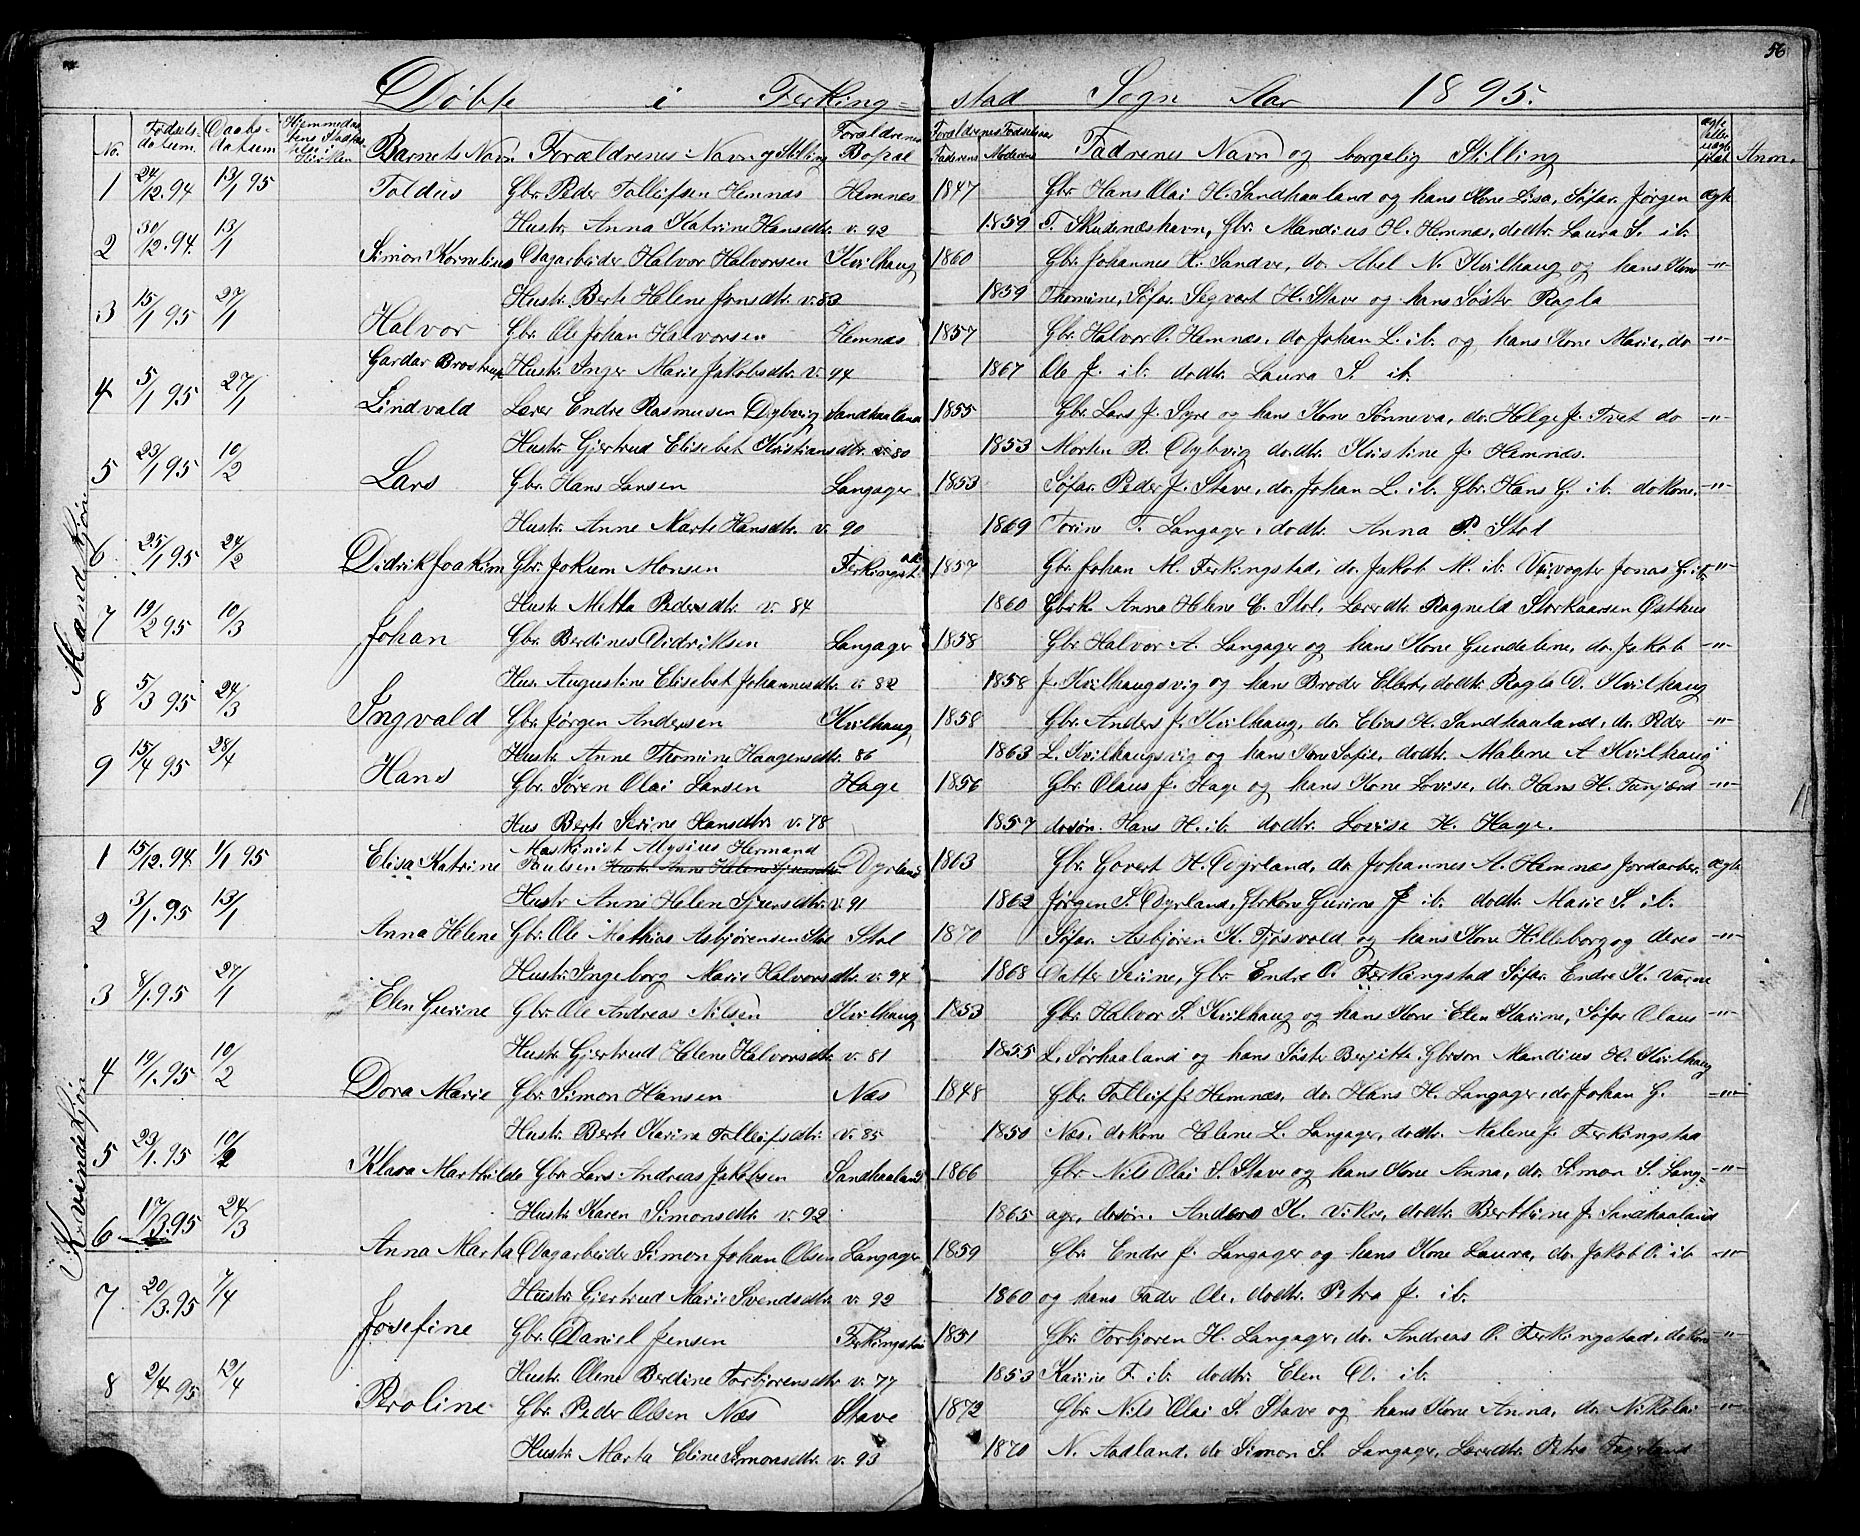 56
Døbte i Ferking= stad Sogn Aar 1895.
No. Fødsels- datum Daabs- datum Barnets Navn Forældrenes Navn og Stilling Forældrenes Bopæl Forældrenes Fødselsaar Faderens Moderens Fadrenes Navn og borgelig Stilling ægte eller uægte født Anm.
Mandkjøn
1 24/12.94 13/1 95 Toldus Gbr. Peder Tolleifsen Hemnes Hemnes 1847 Gbr. Hans Olai H. Sandhaaland og hans Kone Lisa, Søfar. Jørgen ægte
Hustr. Anna Katrine Hansdtr. v. 92 1859 T. Skudenæshavn, Gbr. Mandius H. Hemnes, dodtr. Laura S. ib.
2 30/12.94. 13/1 Simon Kornelius Dagarbeider Halvor Halvorsen Kvilhaug 1860 Gbr. Johannes H. Sandve, do. Abel N. Kvilhaug og hans Kone -"-
Hustr. Berte Helene Jonsdtr. v. 83 1859 Thomine, Søfar. Segvart H. Stave og hans Søster Ragla
3 15/1 95 27/1 Halvor Gbr. Ole Johan Halvorsen Hemnes 1857 Gbr. Halvor O. Hemnes, do Johan L. ib. og hans Kone Marie, do -"-
Hustr. Inger Marie Jakobsdtr. v. 94 1867 Ole J. ib. dodtr. Laura S. ib.
4 5/1 95 27/1 Gardar Brostrup Lindvald Lærer Endre Rasmusen Dybvig Sandhaaland 1855 Gbr. Lars J. Syre og hans Kone Sønneva, do. Helge J. Tvet do -"-
Hustr. Gjertrud Elisebet Kristiansdtr. v. 80 1853 Morten R. Dybvig dodtr. Kristine J. Hemnes.
5 23/1 95 10/2 Lars Gbr. Hans Larsen Langager 1853 Søfar. Peder J. Stave, do. Johan L. ib. Gbr. Hans G. ib. dokone. -"-
Hustr. Anne Marte Hansdtr. v. 90 1869 Torine T. Langager, dodtr. Anna P. Stol
6 25/1 95 24/2 Didrik Joakim Gbr. Jokum Monsen Ferkingstad 1857 Gbr. Johan M. Ferkingstad, do. Jakob M. ib. Jonas G. ib. -"-
Hustr. Metta Pedersdtr. v. 84 1860 Gbrk. Anna Helene E. Stol, Lærdtr. Ragneld Storkaarsen Østhus
7 19/2 95 10/3 Johan Gbr. Berdines Didriksen Langager 1858 Gbr. Halvor A. Langager og hans Kone Gundeline, do. Jakob -"-
Hus. Augustine Elisebet Johannesdtr. v. 82 1858 J. Kvilhaugsvig og hans Broder Elbert, dodtr. Ragla D. Kvilhaug
8 5/3 95 24/3 Ingvald Gbr. Jørgen Andersen Kvilhaug, 1858 Gbr. Anders J. Kvilhaug, do. Elias H. Sandhaaland, do. Peder -"-
Hustr. Anne Thomine Haagensdtr. 86 1863 L. Kvilhaugsvig og hans Kone Sofie, dodtr. Malene A. Kvilhaug
9 15/4 95 28/4 Hans Gbr. Søren Olai Larsen Hage 1856 Gbr. Olaus J. Hage og hans Kone Lovise, do. Hans H. -"-
Hus Berte Serine Hansdtr. v. 78 1857 dosøn. Hans H. ib. dodtr. Lovise H. Hage.
Kvindekjøn
1 15/12.94 1/1 95 Elisa Katrine Maskinist Alysius Hermand Paulsen Hustr. Anne Helene Sjursdtr. Dyrland 1863 Gbr. Govert H. Dyrland, do. Johannes A. Hemnes Jordarber. ægte
Hustr. Anne Helen Sjursdtr. v. 91 1862 Jørgen S. Dyrland, Gbrkone Gurine J. ib. dodtr. Marie S. ib.
2 3/1.95 13/1 Anna Helene Gbr. Ole Mathias Asbjørensen Stol Stol 1870 Søfar. Asbjøren K. Fosvold og hans Kone Hilleborg og deres -"-
Hustr. Ingeborg Marie Halvorsdtr. v. 94 1868 Datter Serine, Gbr. Endre O. Ferkingstad Søfar. Endre K. Varne
3 8/1.95 27/1 Elen Gurine Gbr. Ole Andreas Nilsen Kvilhaug 1853 Gbr. Halvor S. Kvilhaug og hans Kone Elen Karine, Søfar Olaus -"-
Hustr. Gjertrud Helene Halvorsdtr. v. 81 1855 L. Sørhaaland og hans Søster Berjitte, Gbrsøn Mandius H. Kvilhaug
4 19/1.95 10/2 Dora Marie Gbr. Simon Hansen Næs 1848 Gbr. Tolleif J. Hemnes, do. Hans H. Langager, do Johan G. -"-
Hustr. Berte Karina Tolleifsdtr. v. 85 1850 Næs, dokone Helene L. Langager, dodtr. Malene J. Ferkingstad
5 23/1.95 10/2 Klara Marthilde Gbr. Lars Andreas Jakobsen Sandhaaland 1866 Gbr. Nils Olai S. Stave og hans Kone Anna, do. Simon S. Lang= -"-
Hustr. Karen Simonsdtr. v. 92 1865 ager, dosøn. Anders K. Vikre, dodtr. Berthine J. Sandhaaland
6 17/3.95 24/3 Anna Marta Dagarbeider Simon Johan Olsen Langager 1859 Gbr. Endre J. Langager og hans Kone Laura, do. Jakob O. ib -"-
Hustr. Gjertrud Marie Svendsdtr. v. 92 1860 og hans Fader Ole, dodtr. Petra J. ib.
7 20/3.95 7/4 Josefine Gbr. Daniel Jensen Ferkingstad 1851 Gbr. Torbjøren H. Langager, do. Andreas O. Ferkingstad, dokone -"-
Hustr. Olene Berdine Torbjørensdtr. v. 77 1853 Karine F. ib. dodtr. Elen D. ib.
8 2/4 95 12/4 Proline Gbr. Peder Olsen Næs Stave 1872 Gbr. Nils Olai S. Stave og hans Kone Anna, do. Nikolai -"-
Hustr. Marta Eline Simonsdtr. v. 93 1870 N. Aadland, do Simon S. Langager, Lærerdtr. Petra